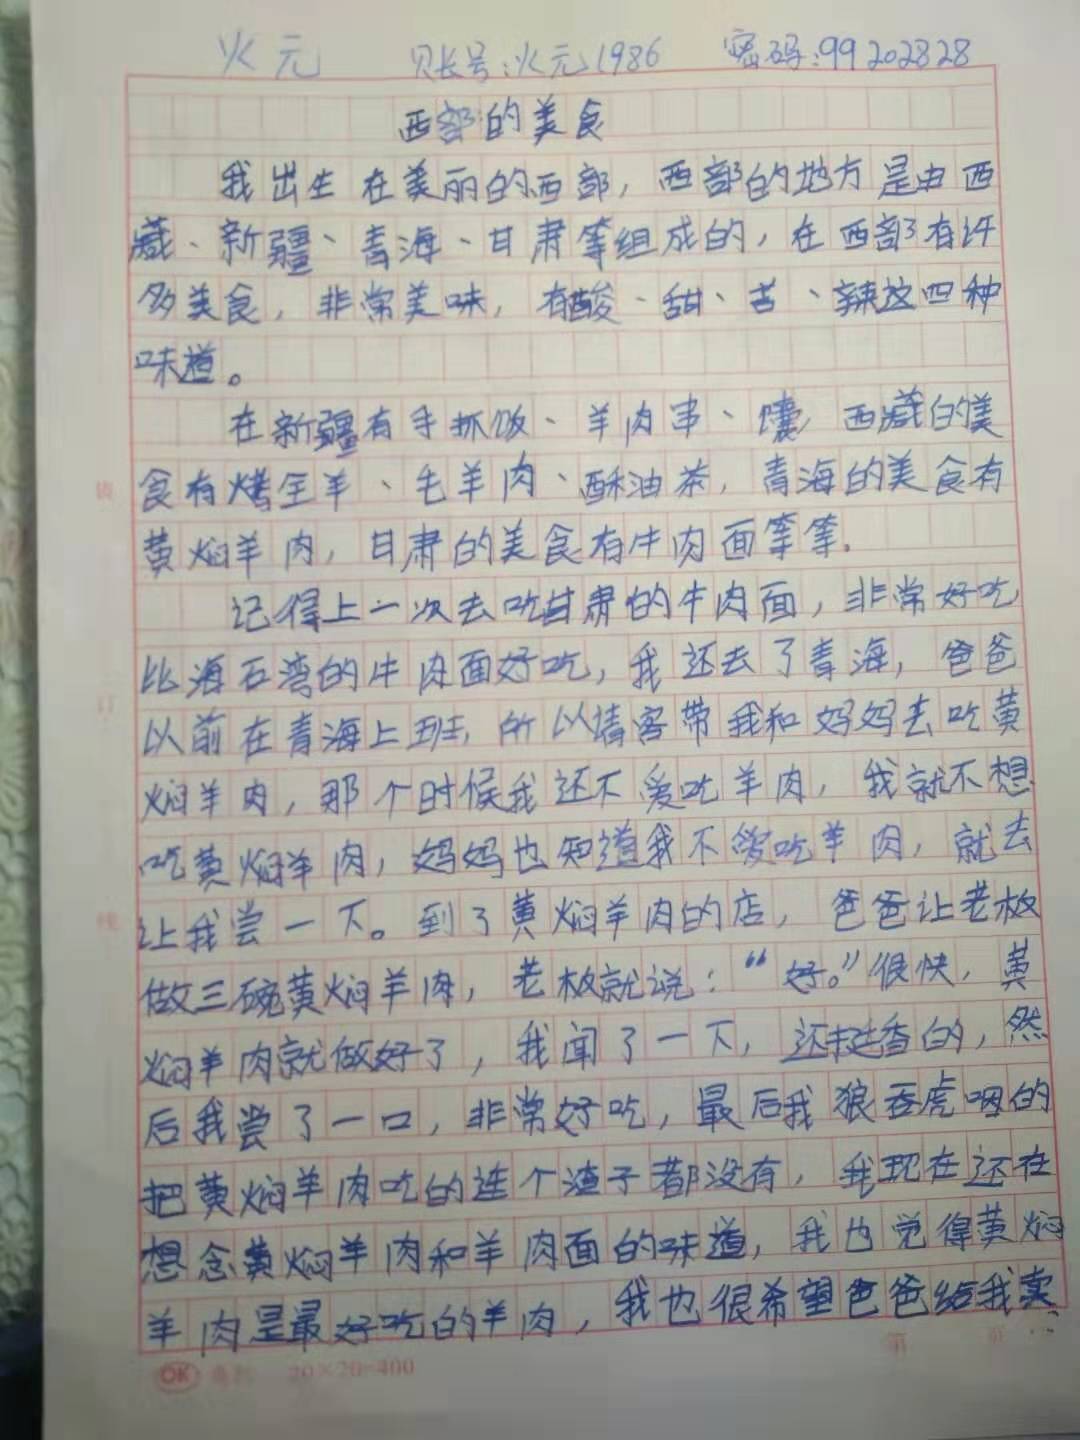 火元 账号:火元1986 密码:99202828
西部的美食
我出生在美丽的西部，西部的地方是由西
藏、新疆、青海、甘肃等组成的，在西部有许
多美食，非常美味，有酸、甜、苦、辣这四种
味道。
在新疆有手抓饭、羊肉串、馕，西藏的美
食有烤全羊、毛羊肉、酥油茶，青海的美食有
黄焖羊肉，甘肃的美食有牛肉面等等.
记得上一次去吃甘肃的牛肉面，非常好吃
比海石湾的牛肉面好吃，我还去了青海，爸爸
以前在青海上班，所以请客带我和妈妈去吃黄
焖羊肉，那个时候我还不爱吃羊肉，我就不想
吃黄焖羊肉，妈妈也知道我不爱吃羊肉，就去
让我尝一下。到了黄焖羊肉的店，爸爸让老板
做三碗黄焖羊肉，老板就说：“好。”很快，黄
焖羊肉就做好了，我闻了一下，还挺香的，然
后我尝了一口，非常好吃，最后我狼吞虎咽的
把黄焖羊肉吃的连个渣子都没有，我现在还在
想念黄焖羊肉和羊肉面的味道，我也觉得黄焖
羊肉是最好吃的羊肉，我也很希望爸爸给我卖
第 页
OK 20×20=400
订
线